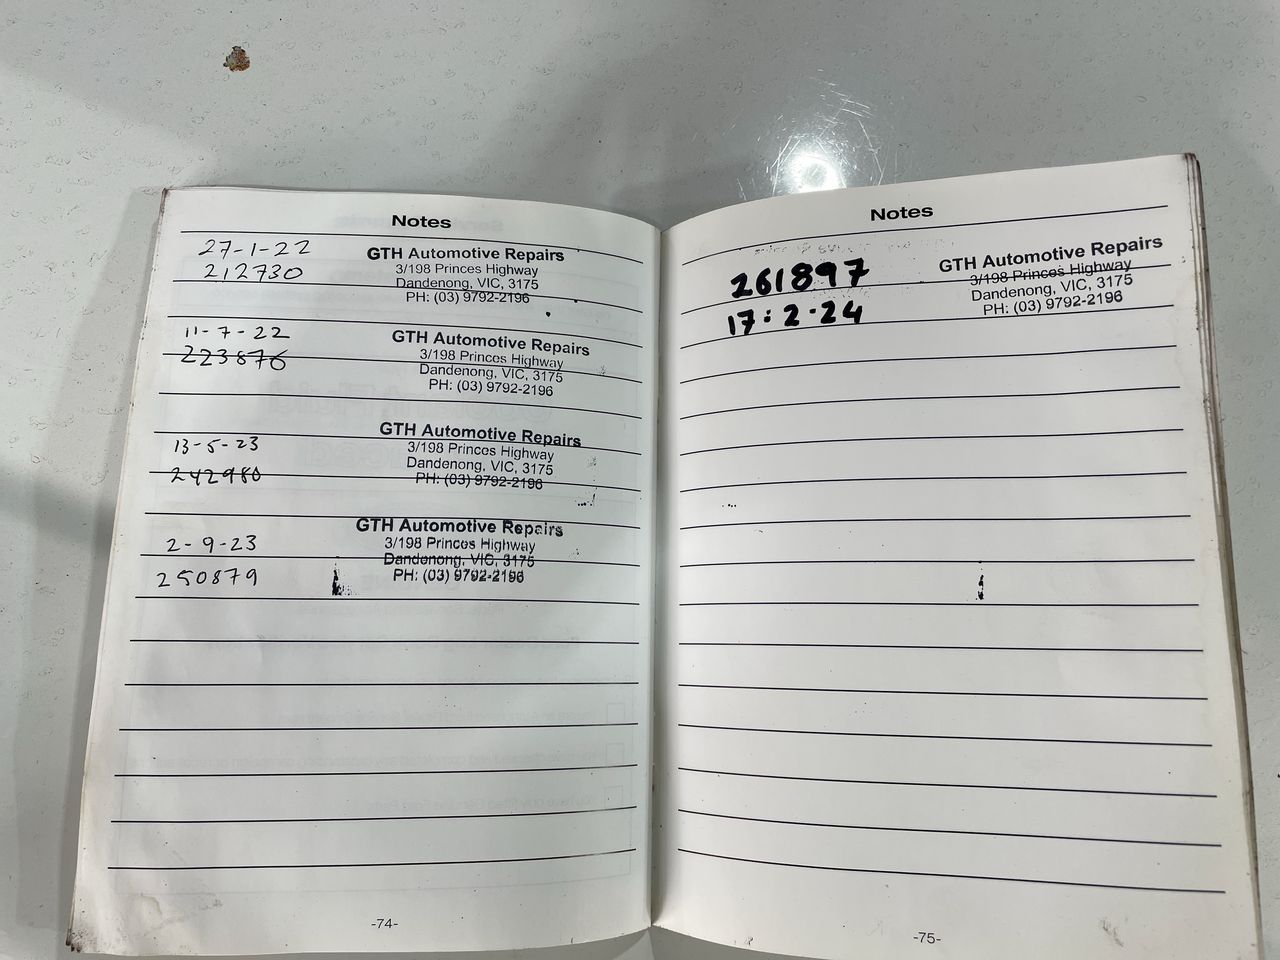 Notes
27-1-22
212730
GTH Automotive Repairs
3/198 Princes Highway
Dandenong, VIC, 3175
PH: (03) 9792-2196
11-7-22
223876
GTH Automotive Repairs
3/198 Princes Highway
Dandenong, VIC, 3175
PH: (03) 9792-2196
13-5-23
242980
GTH Automotive Repairs
3/198 Princes Highway
Dandenong, VIC, 3175
PH: (03) 9792-2196
2-9-23
250879
GTH Automotive Repairs
3/198 Princes Highway
Dandenong, VIC, 3175
PH: (03) 9792-2196
-74-
Notes
261897
17:2·24
GTH Automotive Repairs
3/198 Princes Highway
Dandenong, VIC, 3175
PH: (03) 9792-2196
-75-